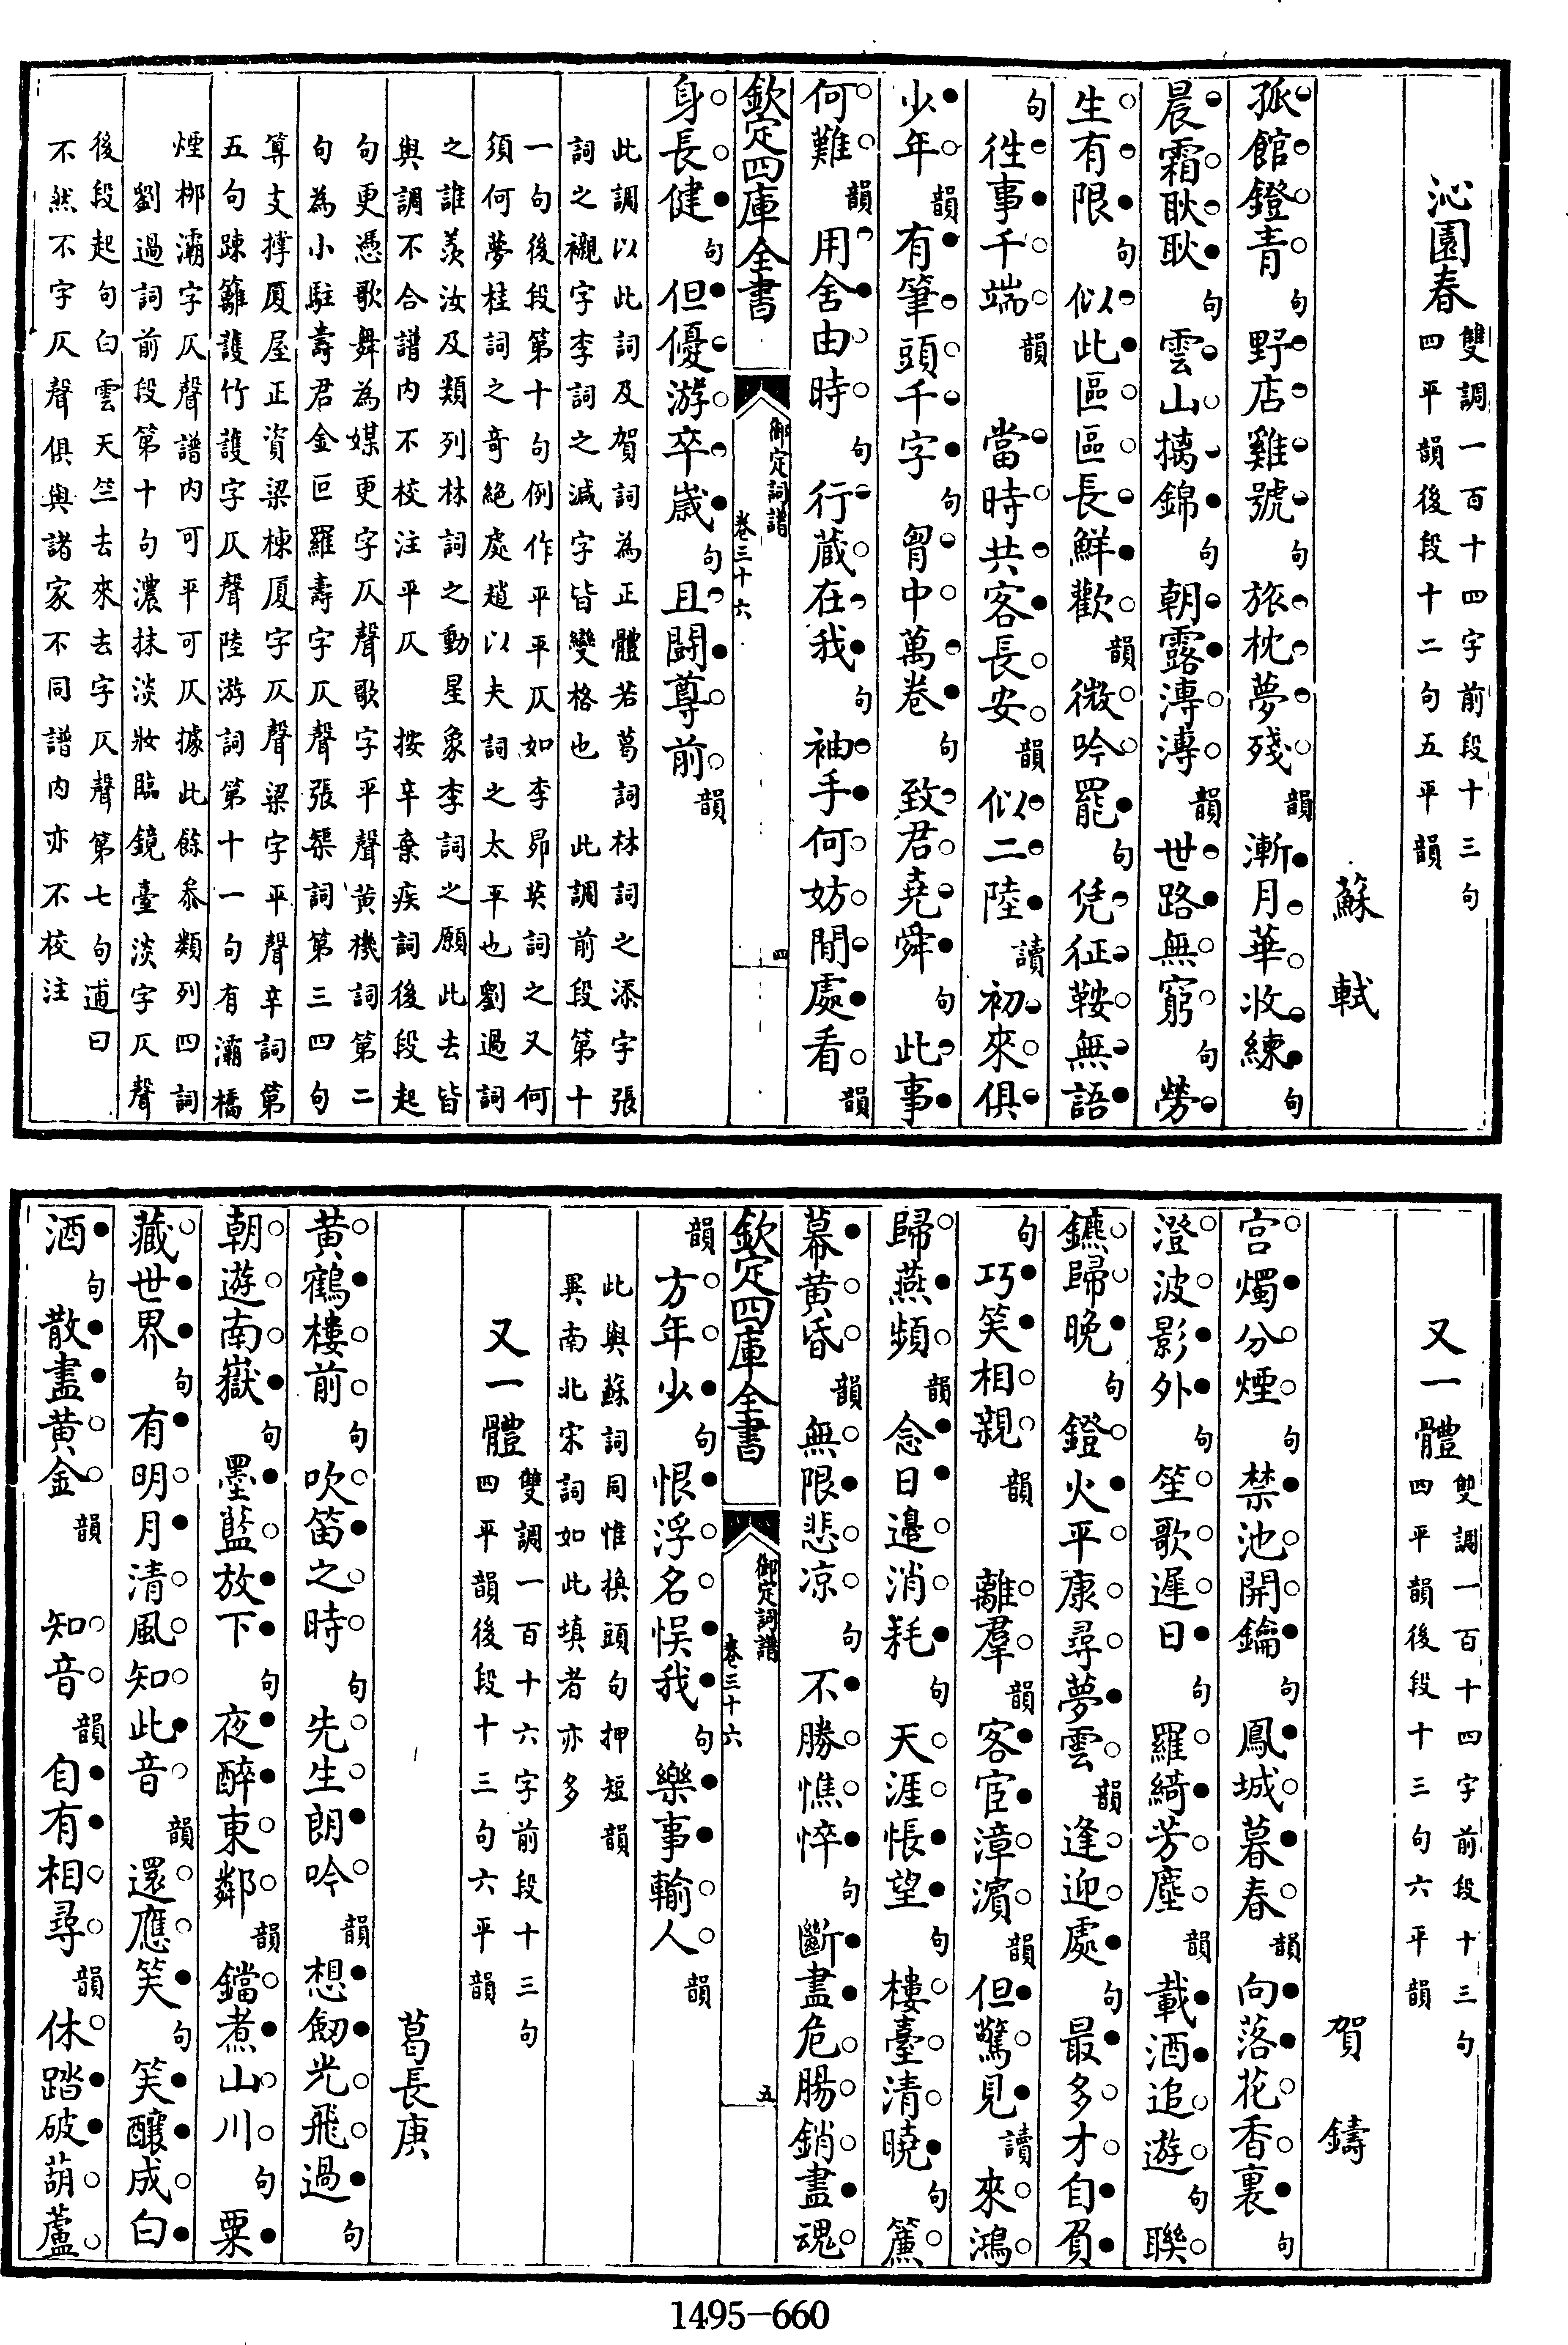 沁園春雙調一百十四字前段十三句
四平韻後段十二句五平韻
蘇軾
孤館鐙青句野店雞號句旅枕夢殘韻漸月華收練句
晨霜耿耿句雲山摛錦句朝露漙漙韻世路無窮句勞
生有限句似此區區長鮮歡韻微吟罷句凭征鞍無語
句徃事千端韻當時共客長安韻似二陸讀初來俱
少年韻有筆頭千字句胷中萬卷句致君堯舜句此事
何難韻用舍由時句行藏在我句袖手何妨閒處看韻
欽定四庫全書
御定詞譜
卷三十六
四
身長健句但優游卒歲句且鬬尊前韻
此調以此詞及賀詞為正體若葛詞林詞之添字張
詞之襯字李詞之減字皆變格也此調前段第十
一句後段第十句例作平平仄如李昴英詞之又何
須何夢桂詞之奇絕處趙以夫詞之太平也劉過詞
之誰羨汝及類列林詞之動星象李詞之願此去皆
與調不合譜内不校注平仄按辛棄疾詞後段起
句更憑歌舞為媒更字仄聲歌字平聲黄機詞第二
句為小駐壽君金叵羅壽字仄聲張榘詞第三四句
筭支撑厦屋正資梁棟厦字仄聲梁字平聲辛詞第
五句踈籬護竹護字仄聲陸游詞第十一句有灞橋
煙栁灞字仄聲譜内可平可仄據此餘叅類列四詞
劉過詞前段第十句濃抹淡妝臨鏡臺淡字仄聲
後段起句白雲天竺去來去字仄聲第七句逋曰
不然不字仄聲俱與諸家不同譜内亦不校注
又一體雙調一百十四字前段十三句
四平韻後段十三句六平韻
賀鑄
宫燭分煙句禁池開鑰句鳳城暮春韻向落花香裏句
澄波影外句笙歌遲日句羅綺芳塵韻載酒追遊句聯
鑣歸晚句鐙火平康尋夢雲韻逢迎處句最多才自負
句巧笑相親韻離羣韻客宦漳濱韻但驚見讀來鴻
歸燕頻韻念日邉消耗句天涯悵望句樓臺清曉句簾
幕黄昏韻無限悲凉句不勝憔悴句斷盡危腸銷盡魂
欽定四庫全書
御定詞譜
卷三十六
五
韻方年少句恨浮名悮我句樂事輸人韻
此與蘇詞同惟換頭句押短韻
異南北宋詞如此填者亦多
又一體雙調一百十六字前段十三句
四平韻後段十三句六平韻
葛長庚
黄鶴樓前句吹笛之時句先生朗吟韻想劒光飛過句
朝遊南嶽句墨藍放下句夜醉東鄰韻鐺煮山川句粟
藏世界句有明月清風知此音韻還應笑句笑釀成白
酒句散盡黄金韻知音韻自有相尋韻休踏破葫蘆
1495-660